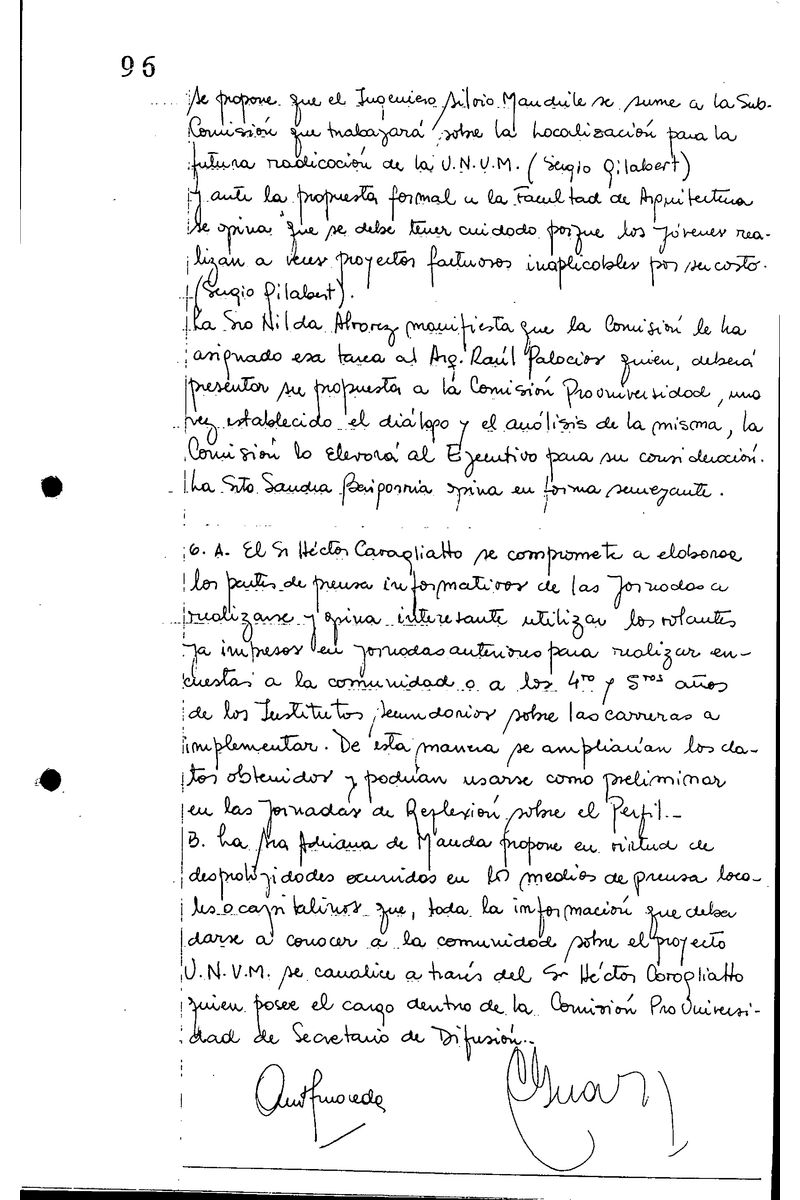 96
Se propone que el Ingeniero Silvio Mandrile se sume a la Sub-
Comisión que trabajará sobre la Localización para la
futura radicación de la U.N.V.M. (Sergio Gilabert)
y ante la propuesta formal a la Facultad de Arquitectura
se opina que se debe tener cuidado porque los jóvenes rea-
lizan a veces proyectos fastuosos inaplicables por su costo.
(Sergio Gilabert).
La Sra Nilda Alvarez manifiesta que la Comisión le ha
asignado esa tarea al Arq. Raúl Palacios quien, deberá
presentar su propuesta a la Comisión Prouniversidad, una
vez establecido el diálogo y el análisis de la misma, la
Comisión lo elevará al Ejecutivo para su consideración.
La Srta Sandra opina en forma semejante.
6. A. El Sr Héctor Cavagliatto se compromete a elaborar
los partes de prensa informativos de las Jornadas a
realizarse y opina interesante utilizar los volantes
ya impresos en jornadas anteriores para realizar en-
cuestas a la comunidad o a los 4ros y 5tos años
de los Institutos Secundarios sobre las carreras a
implementar. De esta manera se ampliarían los da-
tos obtenidos y podrían usarse como preliminar
en las Jornadas de Reflexión sobre el Perfil.-
B. La Sra Adriana de Maujda propone en virtud de
desprolijidades ocurridas en los medios de prensa loca-
les o capitalinos que, toda la información que deba
darse a conocer a la comunidad sobre el proyecto
U.N.V.M. se canalice a través del Sr Héctor Cavagliatto
quien posee el cargo dentro de la Comisión ProUniversi-
dad de Secretario de Difusión.-